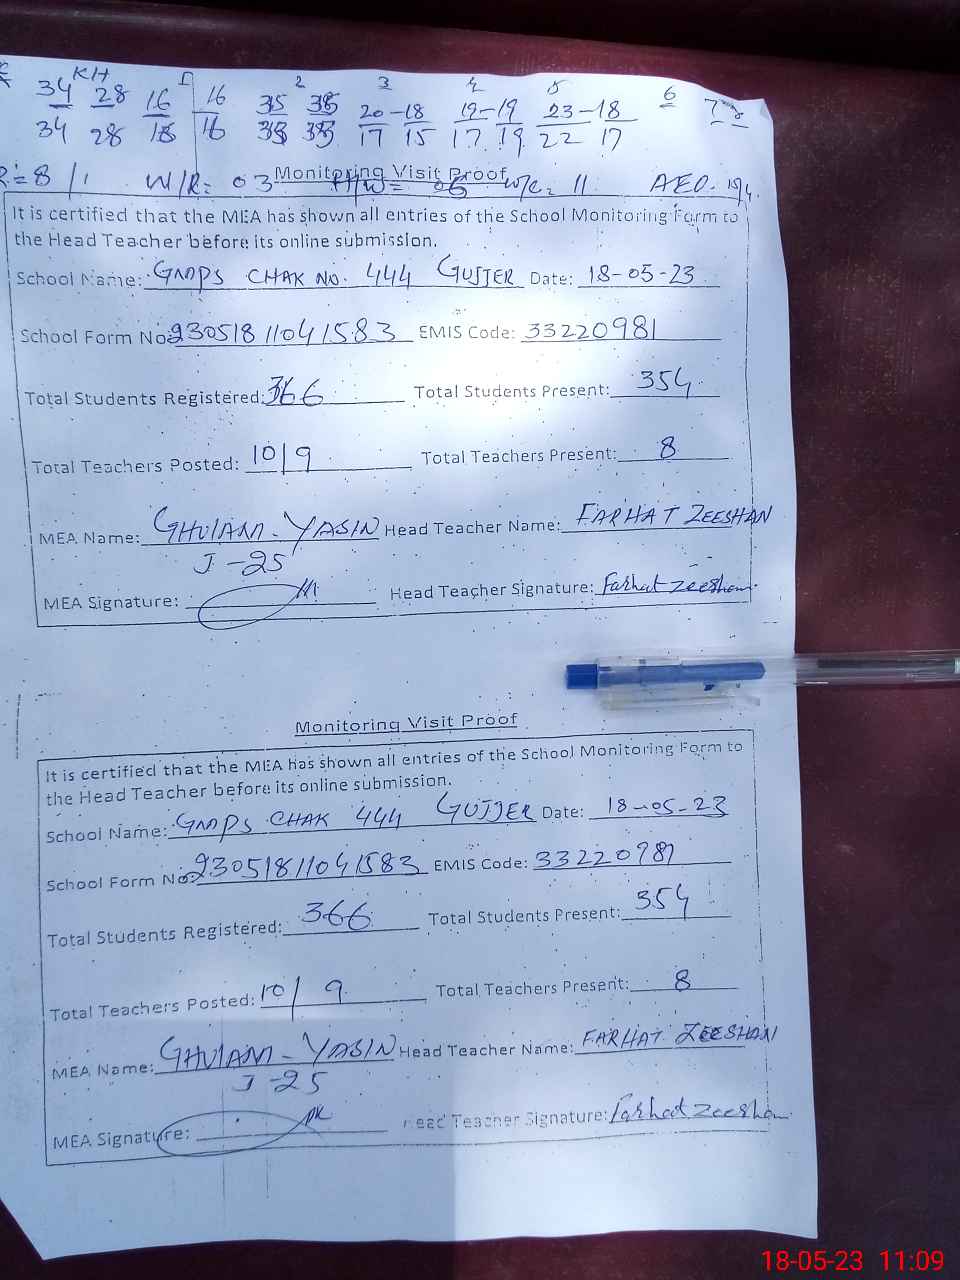 KH 1 2 3 4 5 6
34 28 16 16 35 38 20-18 19-19 23-18 7
34 28 16 33 33 17 15 17 19 22 17
= 8 / 1 W/R= 03 Monitoring Visit Proof H/W= 06 W/C= 11 AEO.
It is certified that the MEA has shown all entries of the School Monitoring Form to
the Head Teacher before its online submission.
School Name: GMPS CHAK NO. 444 GUJJER Date: 18-05-23
School Form No: 23051811041583 EMIS Code: 33220981
Total Students Registered: 366 Total Students Present: 354
Total Teachers Posted: 10/9 Total Teachers Present: 8
MEA Name: GHULAM-YASIN Head Teacher Name: FARHAT ZEESHAN
J-25
MEA Signature: Head Teacher Signature: Farhat Zeeshan
Monitoring Visit Proof
It is certified that the MEA has shown all entries of the School Monitoring Form to
the Head Teacher before its online submission.
School Name: GMPS CHAK 444 GUJJER Date: 18-05-23
School Form No: 23051811041583 EMIS Code: 33220981
Total Students Registered: 366 Total Students Present: 354
Total Teachers Posted: 10/ 9 Total Teachers Present: 8
MEA Name: GHULAM-YASIN Head Teacher Name: FARHAT ZEESHAN
J-25
MEA Signature: Head Teacher Signature: Farhat Zeeshan
18-05-23 11:09